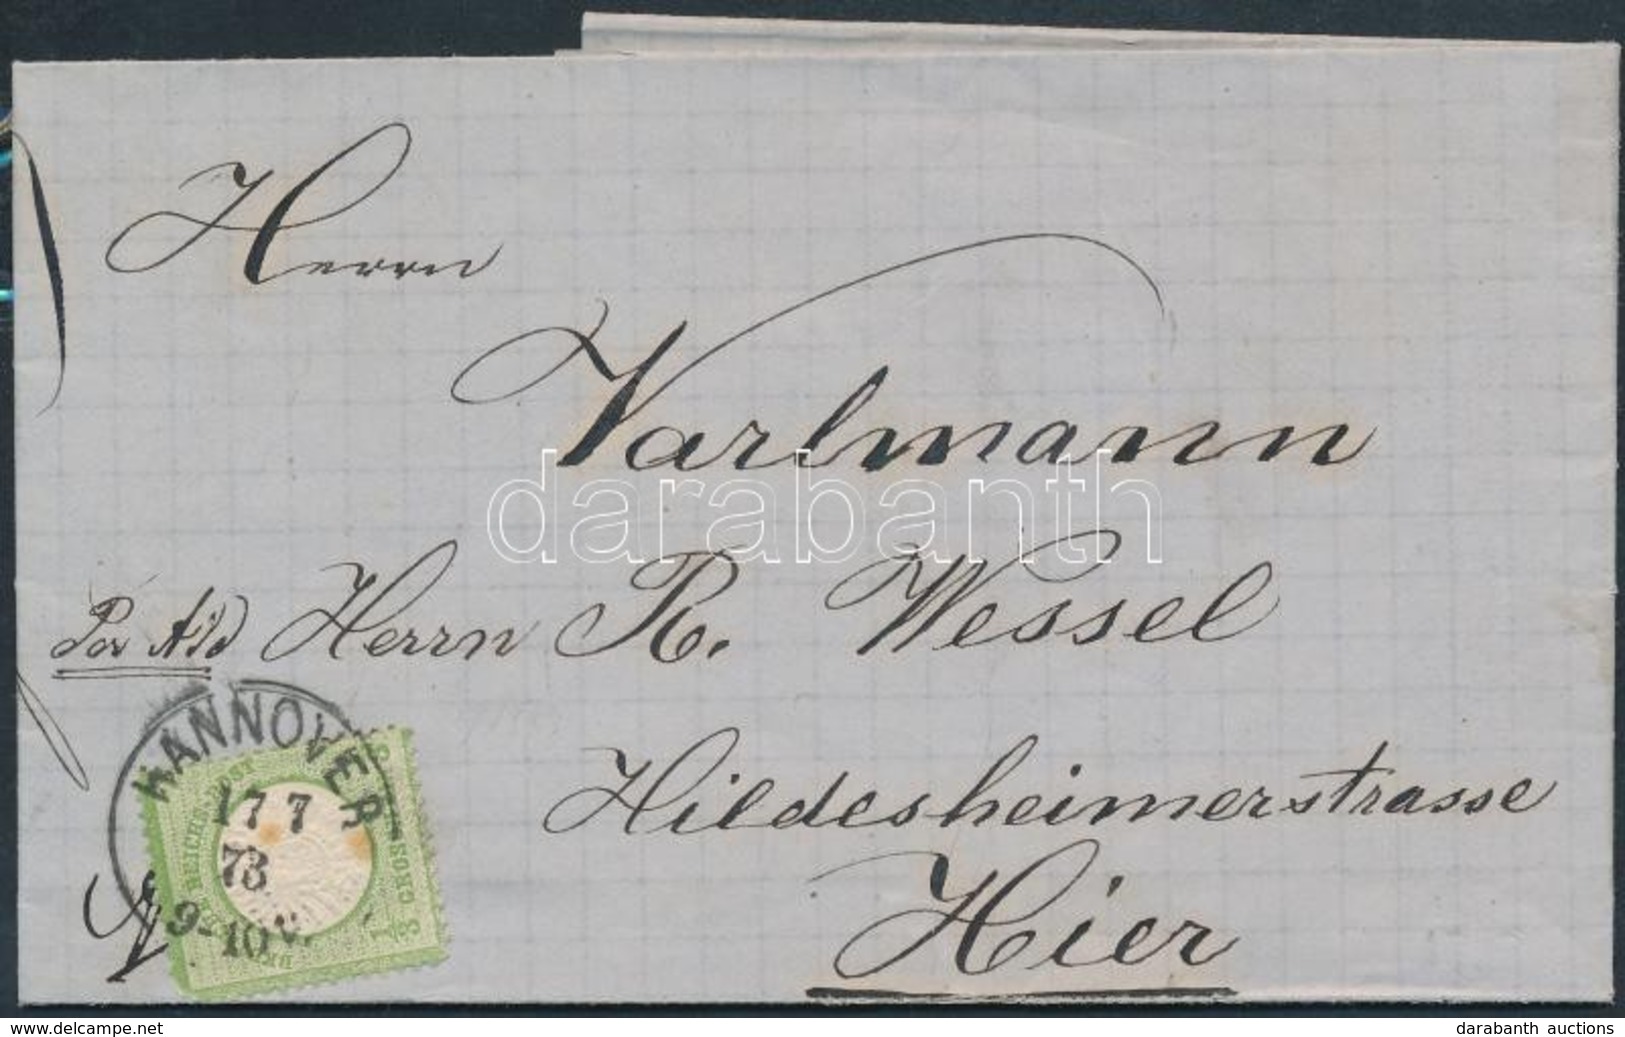 Herrn
Varlmann
Per Herrn R. Wessel
Hildesheimerstrasse
Hier
HANNOVER
17 7
73
9-10 V.
REICHS-POST
GROSCHEN
1/3
1/3
darabanth
www.delcampe.net
darabanth auctions